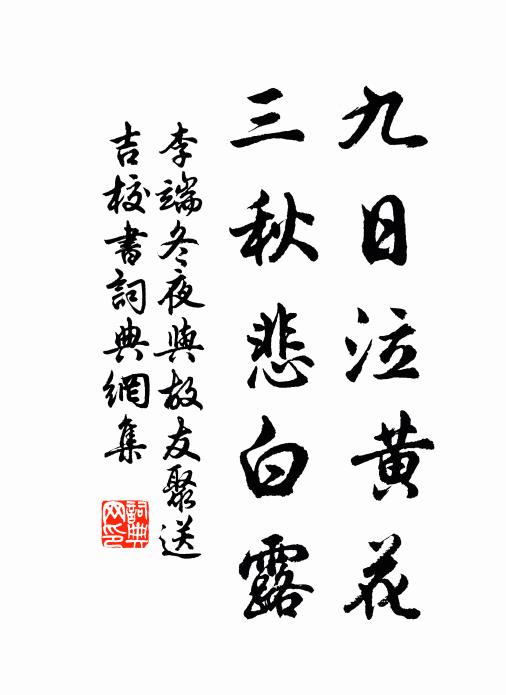 九日泣黄花
三秋悲白露
李端冬夜與故友聚送
吉校書詞典網集
詞典网印